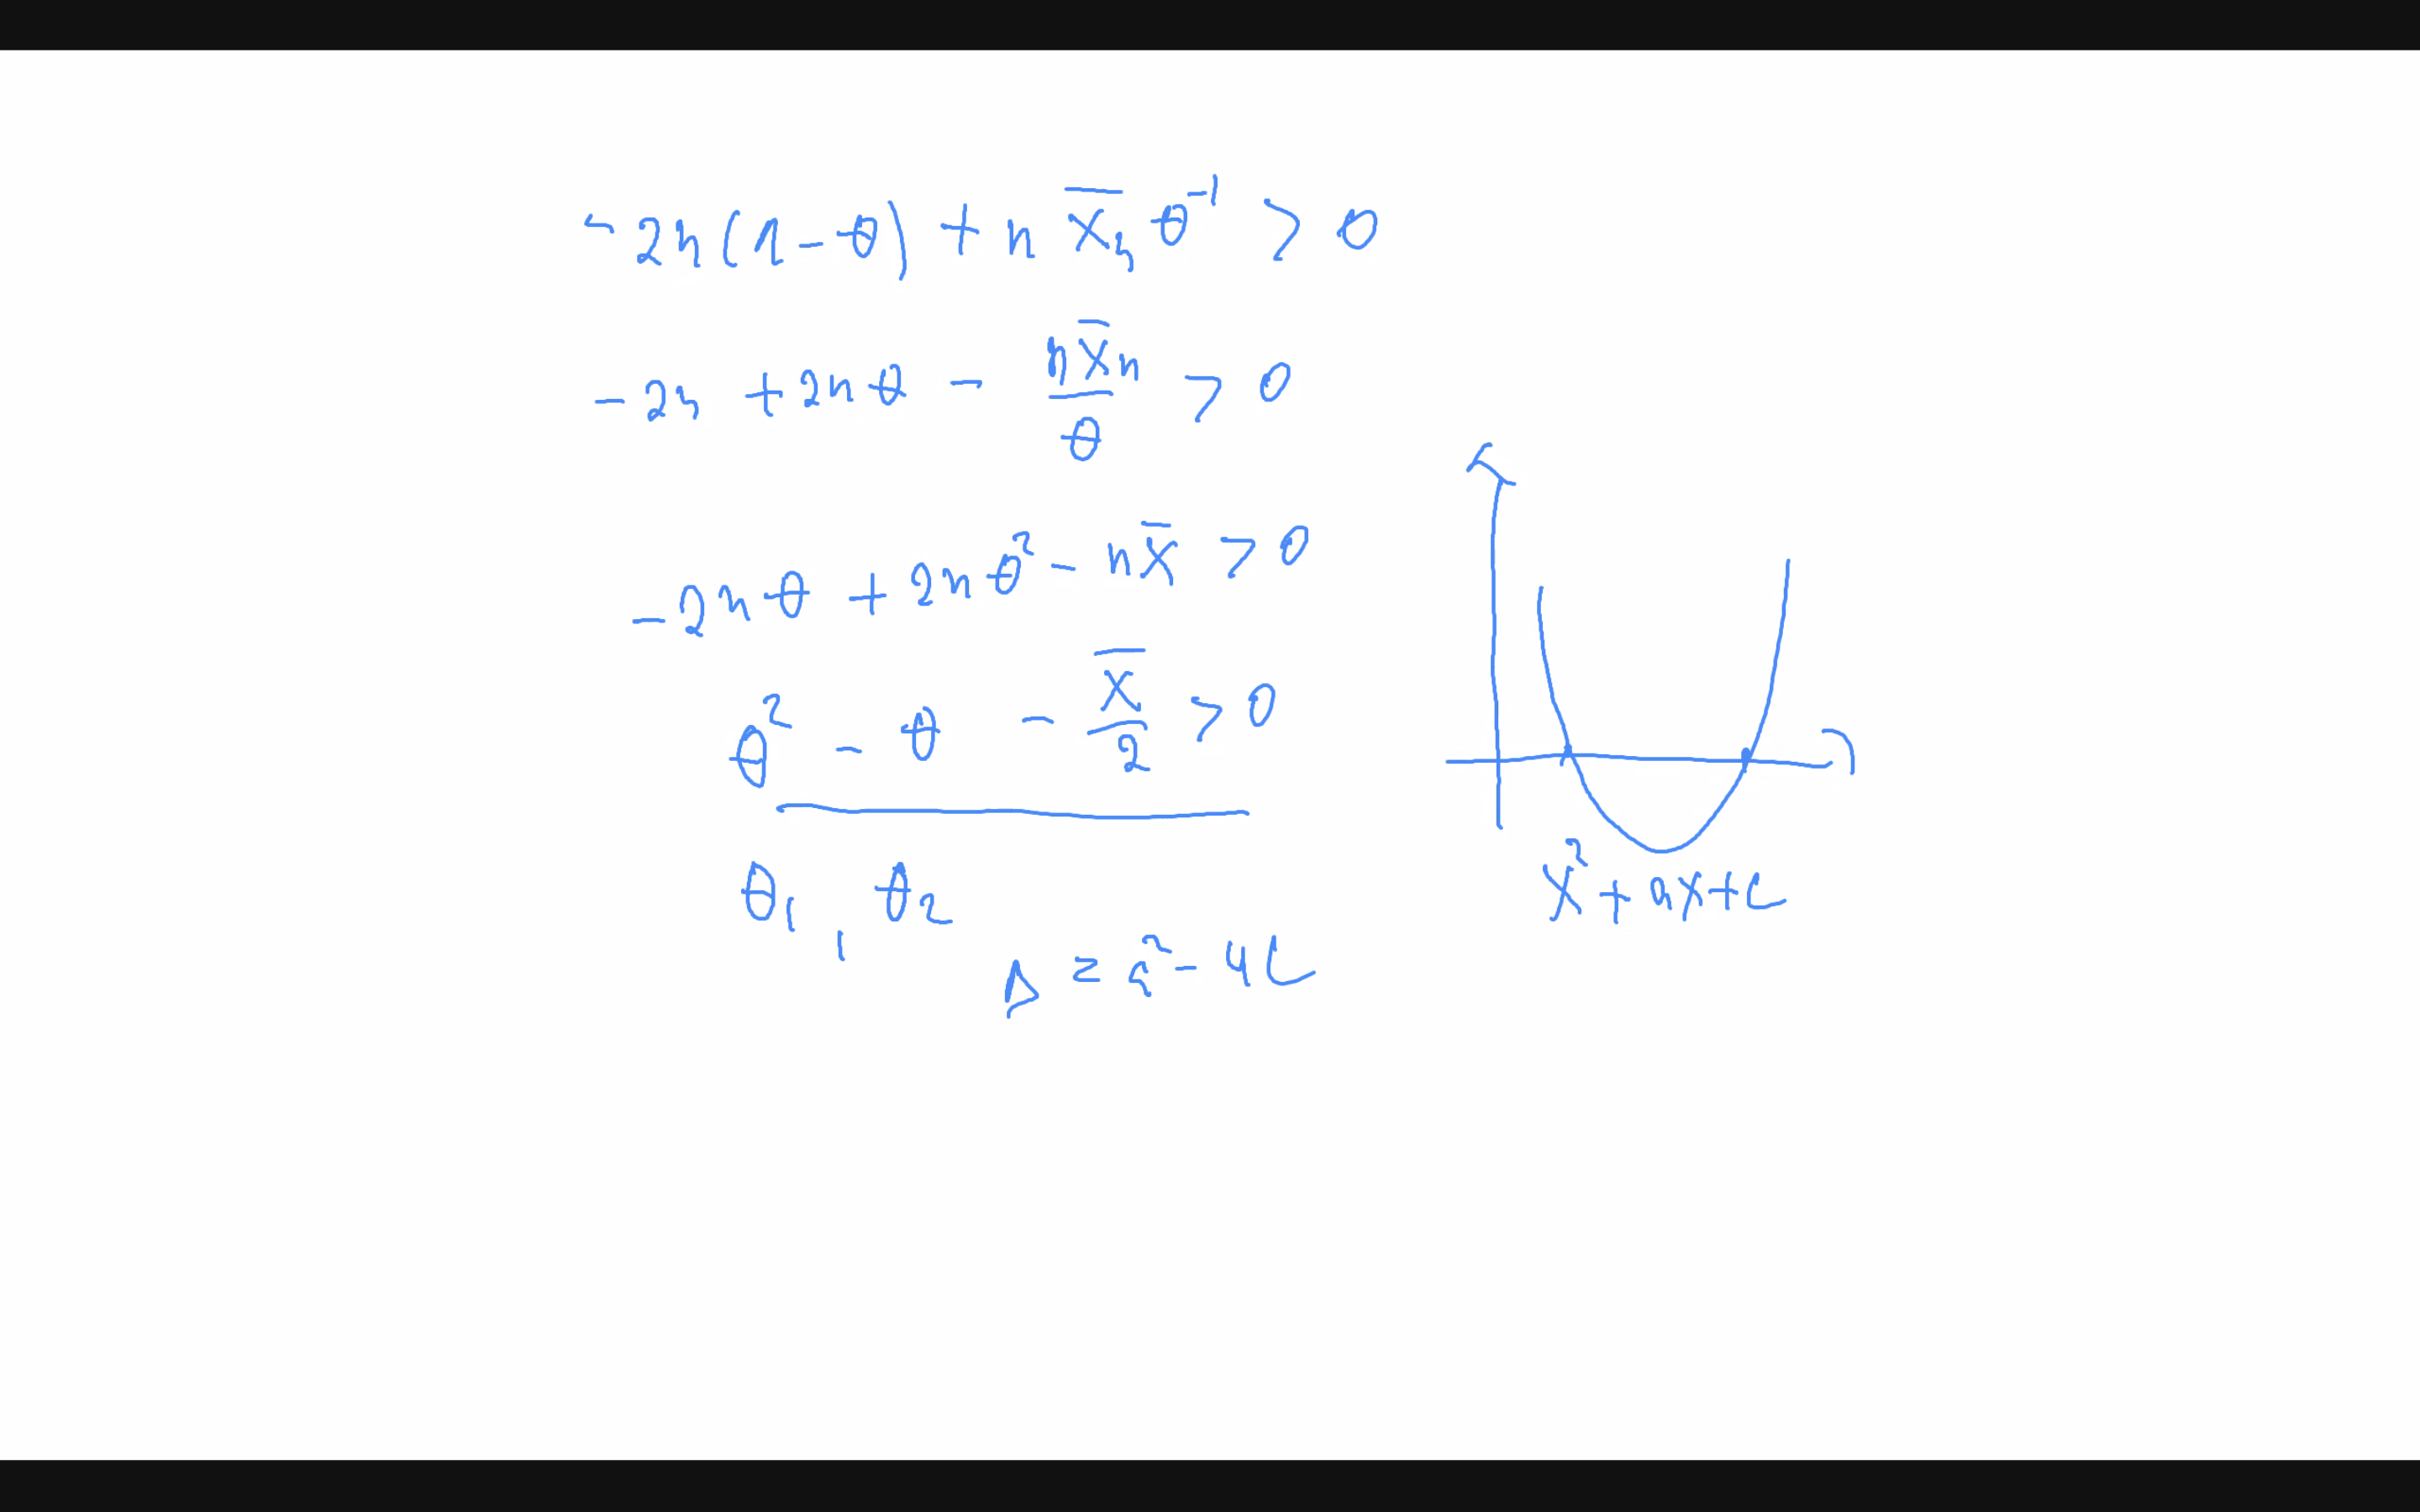 -2n(1-θ) + n X̄ₙ θ⁻¹ > 0
-2n + 2nθ - nX̄ₙ/θ > 0
-2nθ + 2nθ² - nX̄ > 0
θ² - θ - X̄/2 > 0
θ₁, θ₂
Δ = a² - 4c
x² + ax + c